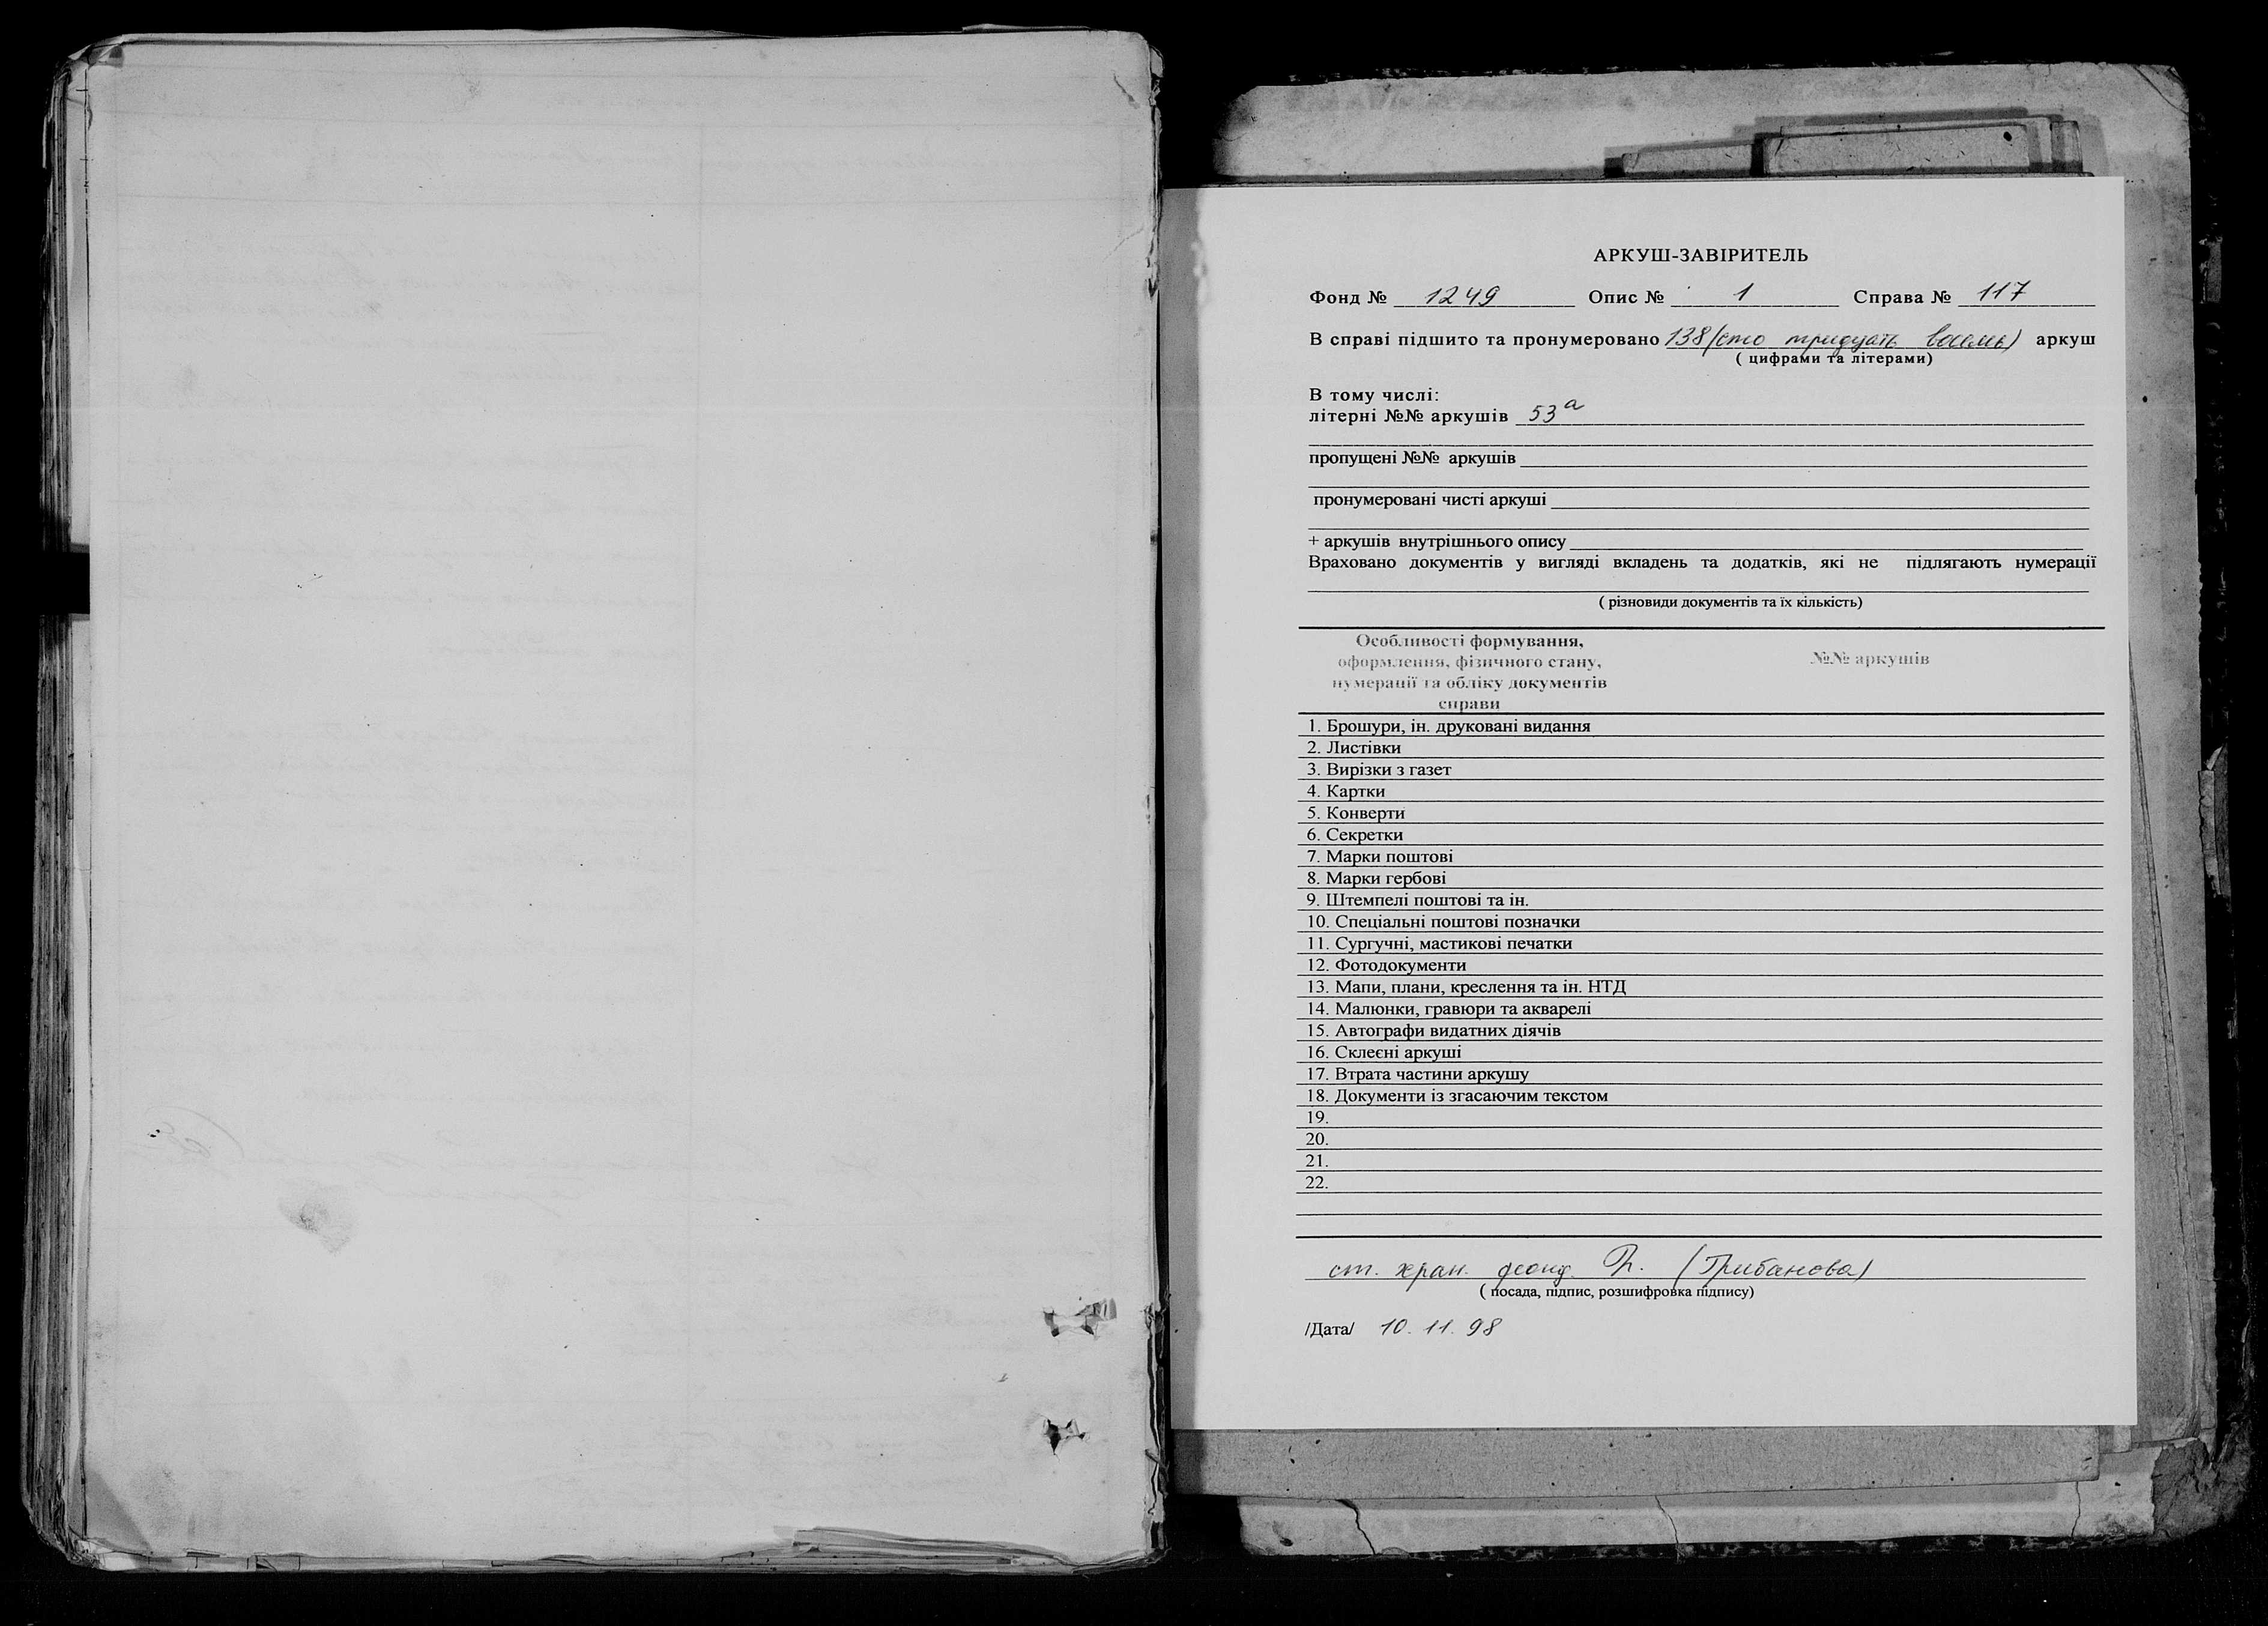 АРКУШ-ЗАВІРИТЕЛЬ
Фонд № 1249 Опис № 1 Справа № 117
В справі підшито та пронумеровано 138 (сто тридцать восемь) аркуш
( цифрами та літерами)
В тому числі:
літерні №№ аркушів 53а
пропущені №№ аркушів
пронумеровані чисті аркуші
+ аркушів внутрішнього опису
Враховано документів у вигляді вкладень та додатків, які не підлягають нумерації
( різновиди документів та їх кількість)
Особливості формування,
оформлення, фізичного стану, №№ аркушів
нумерації та обліку документів
справи
1. Брошури, ін. друковані видання
2. Листівки
3. Вирізки з газет
4. Картки
5. Конверти
6. Секретки
7. Марки поштові
8. Марки гербові
9. Штемпелі поштові та ін.
10. Спеціальні поштові позначки
11. Сургучні, мастикові печатки
12. Фотодокументи
13. Мапи, плани, креслення та ін. НТД
14. Малюнки, гравюри та акварелі
15. Автографи видатних діячів
16. Склеєні аркуші
17. Втрата частини аркушу
18. Документи із згасаючим текстом
19.
20.
21.
22.
ст. хран. фонд. (Грибанова)
( посада, підпис, розшифровка підпису)
/Дата/ 10. 11. 98